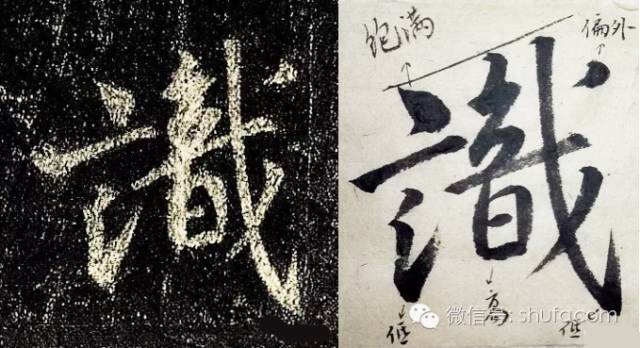 識
飽满
偏外
識
低
高
低
微信号: shufacom